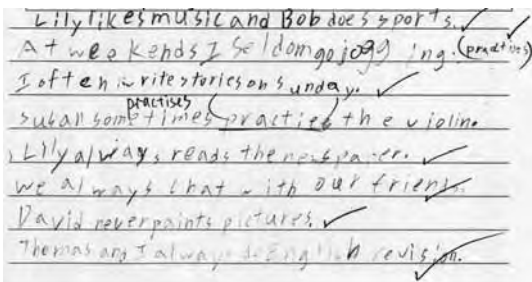 Lily likes music and Bob does sports.
At weekends I seldom go jogging. (practises)
I often write stories on sunday.
practises
susan sometimes practies the violin.
Lily always reads the newspaper.
we always chat with our friends.
David never paints pictures.
Thomas and I always do English revision.